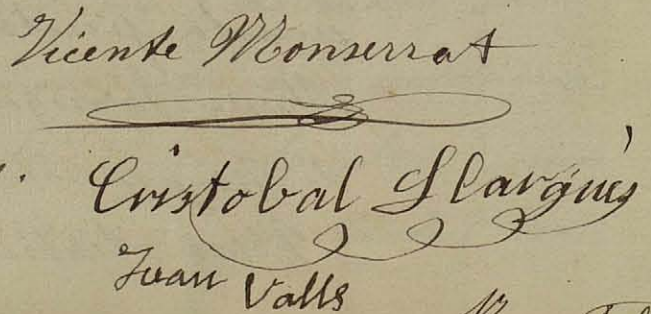 Vicente Monserrat
Cristobal Llargués
Juan Valls